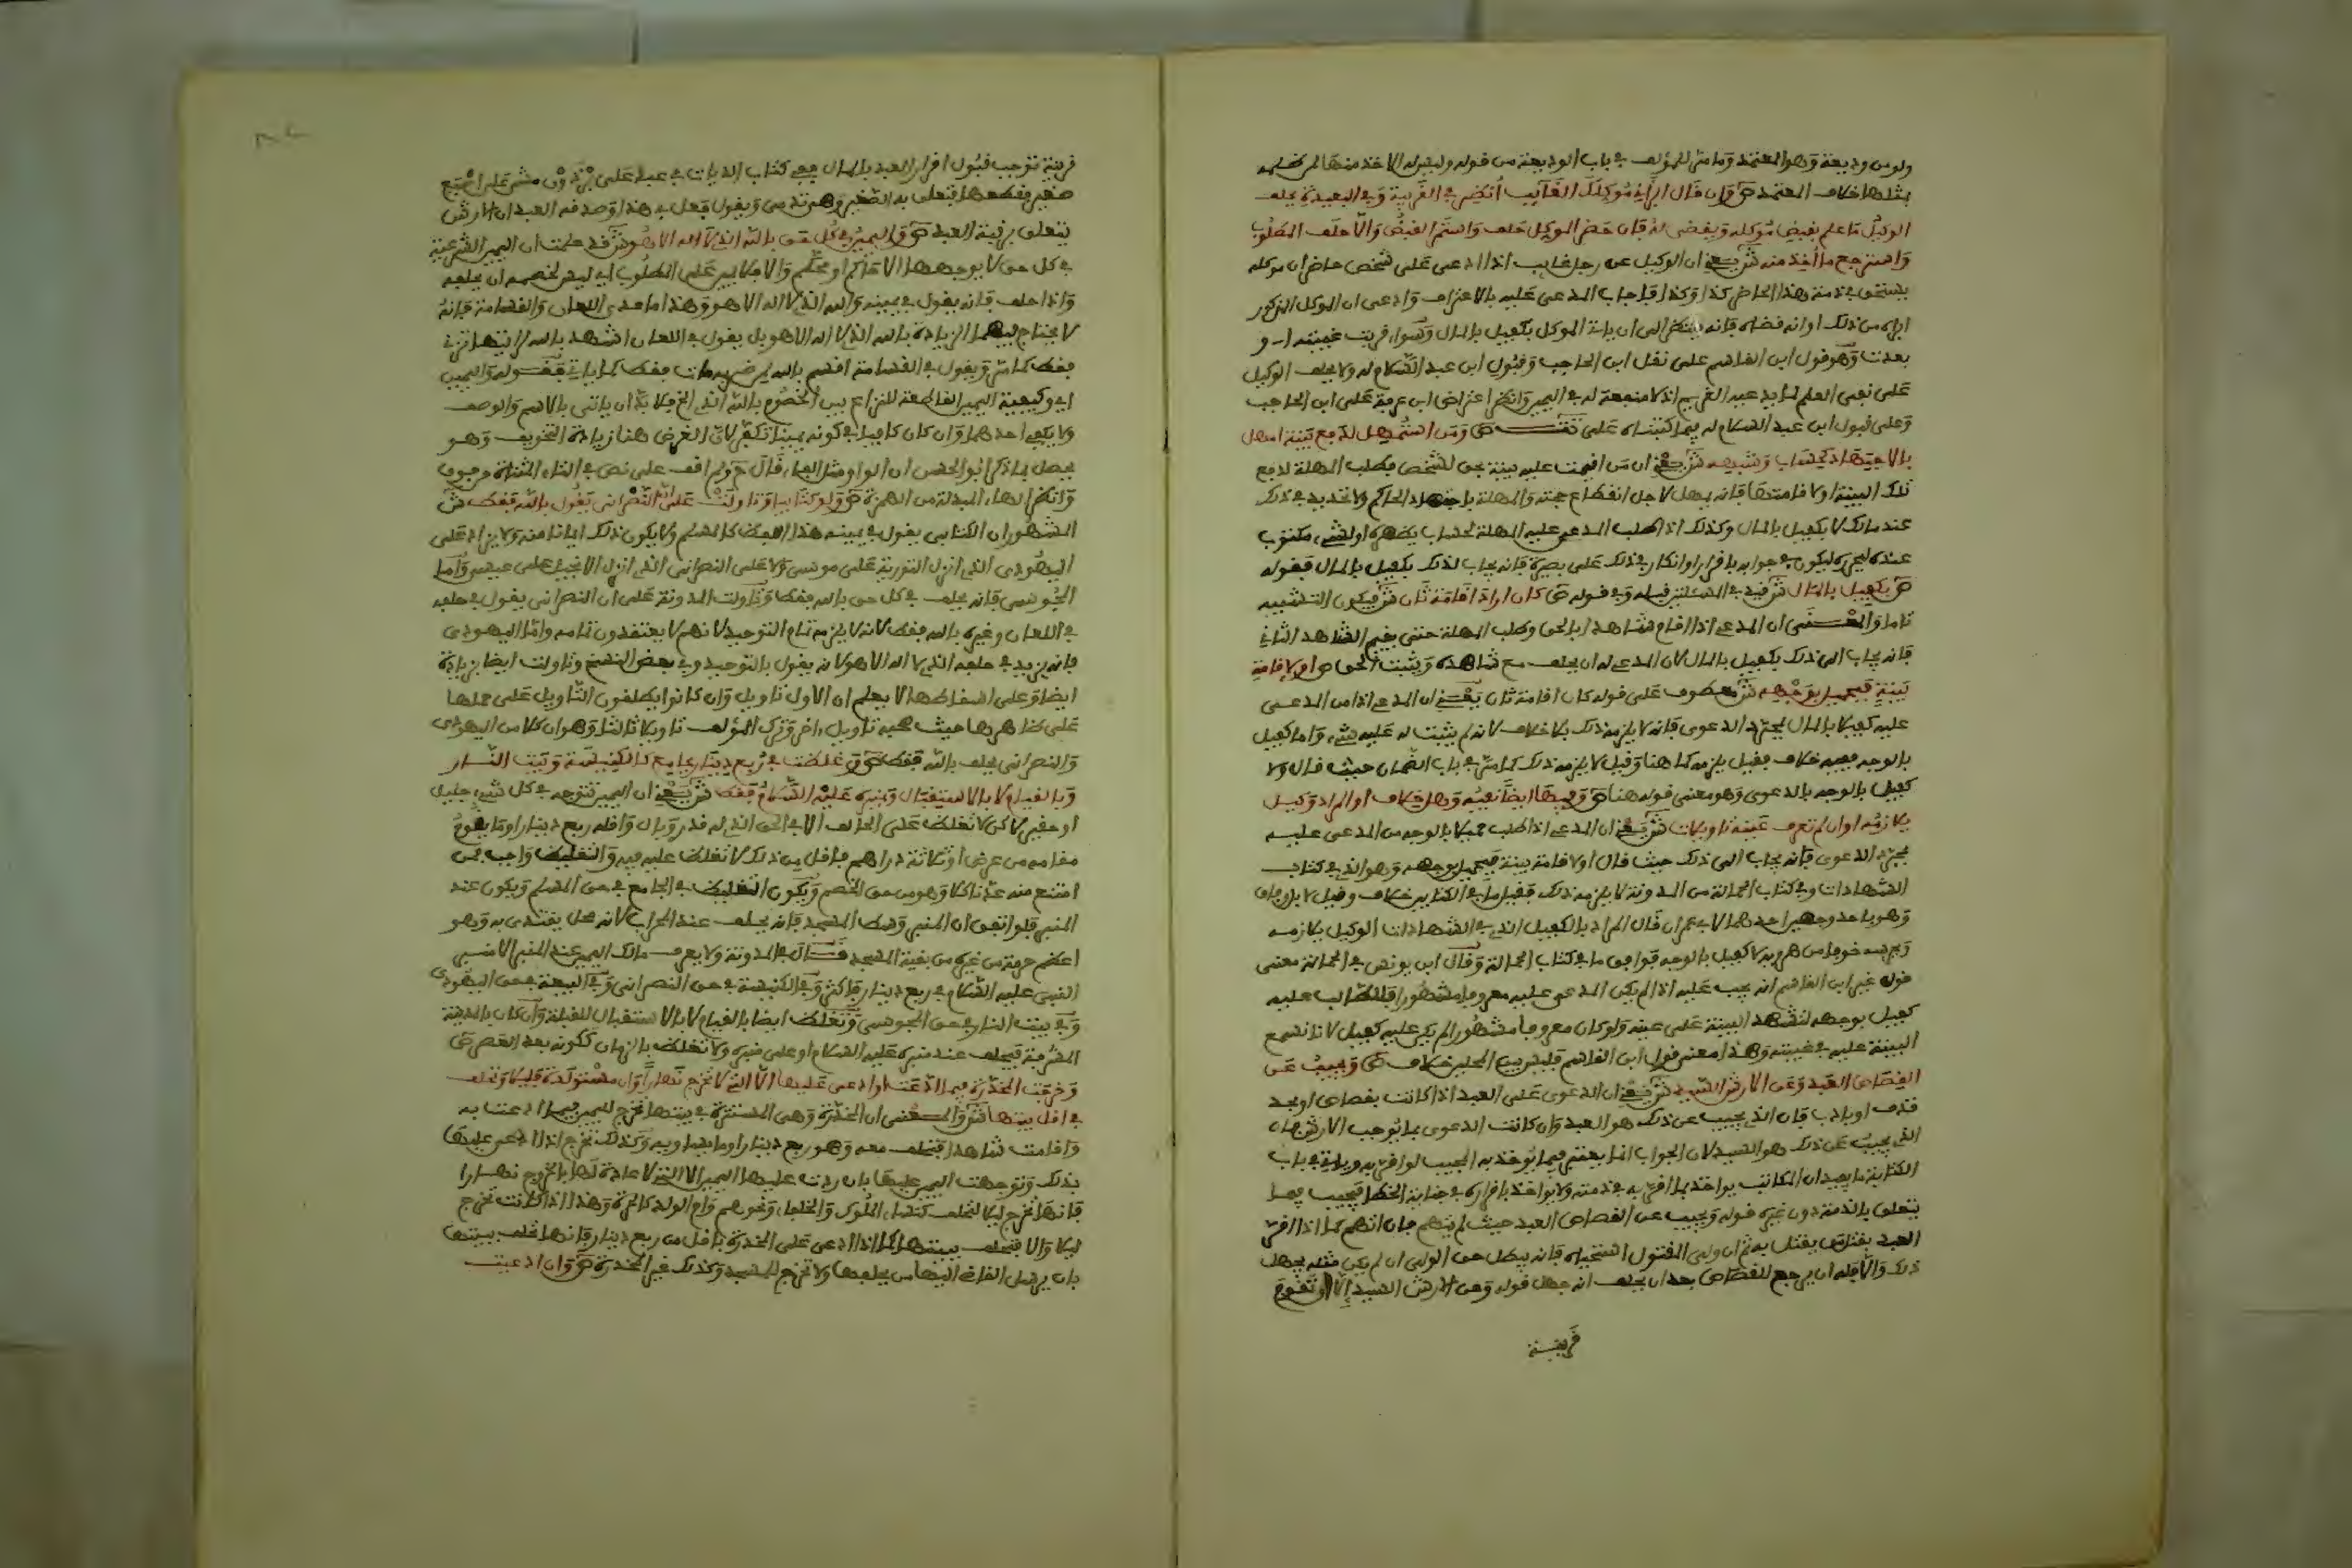 ولو من وديعة وهو المعتمد وما مر للمؤلف في باب الوديعة من قوله وليس له الاخذ منها لمن ظلمه
بمثلها خلاف المعتمد ص وان قال ابرأني موكلك الغائب انظر في القريبة وفي البعيدة يحلف
الوكيل ما علم بقبض موكله ويقضى له فان حضر الموكل حلف واستمر القبض والا حلف المطلوب
واسترجع ما اخذ منه ش يعني ان الوكيل عن رجل غايب اذا ادعى على شخص حاضر ان موكله
يستحق في ذمة هذا الحاضر كذا وكذا فاجاب المدعى عليه بالاعتراف وادعى ان الموكل المذكور
ابراه من ذلك او انه قضاه فانه ينظر الى ان ياتي الموكل بكفيل بالمال وسواء قربت غيبته او
بعدت وهو قول ابن القاسم على نقل ابن الحاجب وقبول ابن عبد السلام له ولا يحلف الوكيل
على نفي العلم لما يدعيه الغريم اذ لا منفعة له في اليمين وانظر اعتراض ابن عرفة على ابن الحاجب
وعلى قبول ابن عبد السلام له فيما كتبناه على تت ص ومن استمهل لدفع بينة امهل
بالاجتهاد كحساب وشبهه ش يعني ان من اقيمت عليه بينة بحق لشخص فطلب المهلة لدفع
تلك البينة او لاقامتها فانه يمهل لاجل انقطاع حجته والمهلة باجتهاد الحاكم ولا تحديد في ذلك
عند مالك لا بكفيل بالمال وكذلك اذا طلب المدعى عليه المهلة لحساب يظهره او لشيء مكتوب
عنده ليحرره ليكون في جوابه باقرار او انكار في ذلك على بصيرة فانه يجاب لذلك بكفيل بالمال فقوله
ص بكفيل بالمال ش قيد في المسئلتين قبله وفي قوله ص كان اراد اقامة ثان ش فيكون التشبيه
تاما والمعنى ان المدعي اذا اقام شاهدا بالحق وطلب المهلة حتى يقيم الشاهد الثاني
فانه يجاب الى ذلك بكفيل بالمال لان المدعي له ان يحلف مع شاهده ويثبت الحق ص او لاقامة
بينة فبحميل بوجهه ش معطوف على قوله كان اقامة ثان يعني ان المدعي اذا من المدعى
عليه كفيلا بالمال بمجرد الدعوى فانه لا يلزمه ذلك بلا خلاف لانه لم يثبت له عليه شيء واما كفيل
بالوجه ففيه خلاف فقيل يلزمه كما هنا وقيل لا يلزمه ذلك كما مر في باب الضمان حيث قال ولا
كفيل بالوجه بالدعوى وهو معنى قوله هنا ص وفيها ايضا نفيه وهل خلاف او المراد وكيل
يلازمه او ان لم تعرف عينه تاويلات ش يعني ان المدعي اذا طلب حميلا بالوجه من المدعى عليه
بمجرد الدعوى فانه يجاب الى ذلك حيث قال او لاقامة بينة فبحميل بوجهه وهو الذي في كتاب
الشهادات وفي كتاب الحمالة من المدونة لا يلزمه ذلك فقيل ما في الكتابين خلاف وقيل لا بل وفاق
وهو باحد وجهين احدهما لابي عمران قال المراد بالكفيل الذي في الشهادات الوكيل يلازمه
ويحرسه خوفا من هروبه لا كفيل بالوجه فوافق ما في كتاب الحمالة وقال ابن يونس في الحمالة معنى
قول غير ابن القاسم انه يجب عليه اذا لم يكن المدعى عليه معروفا مشهورا فللطالب عليه
كفيل بوجهه لتشهد البينة على عينه ولو كان معروفا مشهورا لم يكن عليه كفيل لانا نسمع
البينة عليه في غيبته وهذا معنى قول ابن القاسم فليس بين المحلين خلاف ص ويجيب عن
القصاص العبد وعن الارش السيد ش يعني ان الدعوى على العبد اذا كانت بقصاص او بحد
قذف او بادب فان الذي يجيب عن ذلك هو العبد وان كانت الدعوى بما يوجب الارش فان
الذي يجيب عن ذلك هو السيد لان الجواب انما يعتبر فيما يوخذ به المجيب لو اقر به وياتي في باب
الكتابة ما يفيد ان المكاتب يواخذ بما اقر به في ذمته ولا يواخذ باقراره في جناية الخطا فيجيب فيما
يتعلق بالذمة دون غيره قوله ويجيب عن القصاص العبد حيث لم يتهم فان اتهم كما اذا اقر
العبد بقتل من يقتل به ثم ان ولي المقتول استحياه فانه يبطل حق الولي ان لم يكن مثله يجهل
ذلك والا فله ان يرجع للقصاص بعد ان يحلف انه جهل قوله وعن الارش السيد الا ان تقوم
قرينة
قرينة توجب قبول اقرار العبد بالمال ففي كتاب الديات في عبد على برذون مشى على اصبع
صغير فقطعها فتعلق به الصغير وهي تدمى ويقول فعل بي هذا وصدقه العبد ان الارش
يتعلق برقبة العبد ص واليمين في كل حق بالله الذي لا اله الا هو ش قد علمت ان اليمين الشرعية
في كل حق لا يوجهها الا حاكم او محكم والا فلا يمين على المطلوب اي ليس لخصمه ان يحلفه
واذا حلف فانه يقول في يمينه والله الذي لا اله الا هو وهذا ما عدى اللعان والقسامة فانه
لا يحتاج فيهما لزيادة بالله الذي لا اله الا هو بل يقول في اللعان اشهد بالله لرايتها تزني
فقط كما مر ويقول في القسامة اقسم بالله لمن ضربه مات فقط كما ياتي فقوله واليمين
اي وكيفية اليمين القاطعة للنزاع بين الخصوم بالله الذي الخ فلا بد ان ياتي بالاسم والوصف
ولا يكفي احدهما وان كان كافيا في كونه يمينا تكفر لان الغرض هنا زيادة التخويف وهو
يحصل بما ذكر ابو الحسن ان الواو مثل الباء قال ح ولم اقف على نص في التاء المثناة من فوق
وانظر الهاء المبدلة من الهمزة ص ولو كتابيا وتاولت على ان النصراني يقول بالله فقط ش
المشهور ان الكتابي يقول في يمينه هذا اللفظ كالمسلم ولا يكون ذلك ايمانا منه ولا يزاد على
اليهودي الذي انزل التورية على موسى ولا على النصراني الذي انزل الانجيل على عيسى واما
المجوسي فانه يحلف في كل حق بالله فقط وتاولت المدونة على ان النصراني يقول في حلفه
في اللعان وغيره بالله فقط لانه لا يلزمه تمام التوحيد لانهم لا يعتقدون تمامه واما اليهودي
فانه يزيد في حلفه الذي لا اله الا هو لانه يقول بالتوحيد وفي بعض النسخ وتاولت ايضا بزيادة
ايضا وعلى اسقاطها لا يعلم ان الاول تاويل وان كانوا يطلقون التاويل على حملها
على ظاهرها حيث فيه تاويل اخر وترك المؤلف تاويلا ثالثا وهو ان كلا من اليهودي
والنصراني يحلف بالله فقط ص وغلظت في ربع دينار بجامع كالكنيسة وبيت النار
وبالقيام لا بالاستقبال وبمنبره عليه السلام فقط ش يعني ان اليمين تتوجه في كل شيء جليل
او حقير لاكن لا تغلظ على الحالف الا في الحق الذي له قدر وبال واقله ربع دينار او ما يقوم
مقامه من عرض او ثلاثة دراهم فاقل من ذلك لا تغلظ عليه فيه والتغليظ واجب فمن
امتنع منه عد ناكلا وهو من حق الخصم ويكون التغليظ في الجامع في حق المسلم ويكون عند
المنبر فلو اتفق ان المنبر وسط المسجد فانه يحلف عند المحراب لانه محل يقتدى به وهو
اعظم حرمة من غيره من بقية المسجد قال في المدونة ولا يعرف مالك اليمين عند المنبر الا منبر
النبي عليه السلام في ربع دينار فاكثر وفي الكنيسة في حق النصراني وفي البيعة في حق اليهودي
وفي بيت النار في حق المجوسي وتغلظ ايضا بالقيام لا بالاستقبال للقبلة وان كان بالمدينة
المشرفة فيحلف عند منبره عليه السلام او على منبره ولا تغلظ بالزمان ككونه بعد العصر ص
وخرجت المخدرة فيما ادعت او ادعي عليها الا التي لا تخرج نهارا وان مستولدة فليلا وتحلف
في اقل بيتها ش والمعنى ان المخدرة وهي المستترة في بيتها تخرج لليمين فيما ادعت به
واقامت شاهدا فتحلف معه وهو ربع دينار او ما يساويه وكذلك تخرج اذا ادعي عليها
بذلك وتوجهت اليمين عليها بان ردت عليها اليمين الا التي لا عادة لها بالخروج نهارا
فانها تخرج ليلا لتحلف كنساء الملوك والخلفاء ونحوهم وام الولد كالحرة وهذا اذا كانت تخرج
ليلا والا فتحلف ببيتها كما اذا ادعي على المخدرة باقل من ربع دينار فانها تحلف ببيتها
بان يرسل القاضي اليها من يحلفها ولا تخرج للمسجد وكذلك غير المخدرة ص وان ادعيت